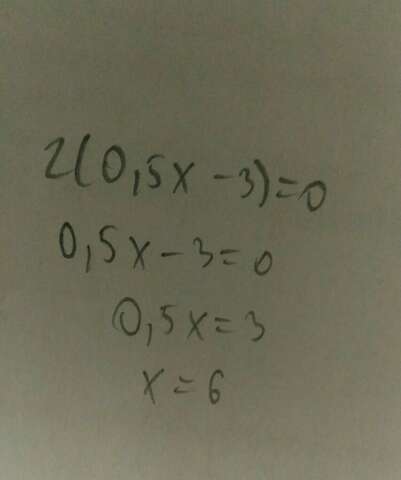 2(0,5x-3)=0
0,5x-3=0
0,5x=3
x=6